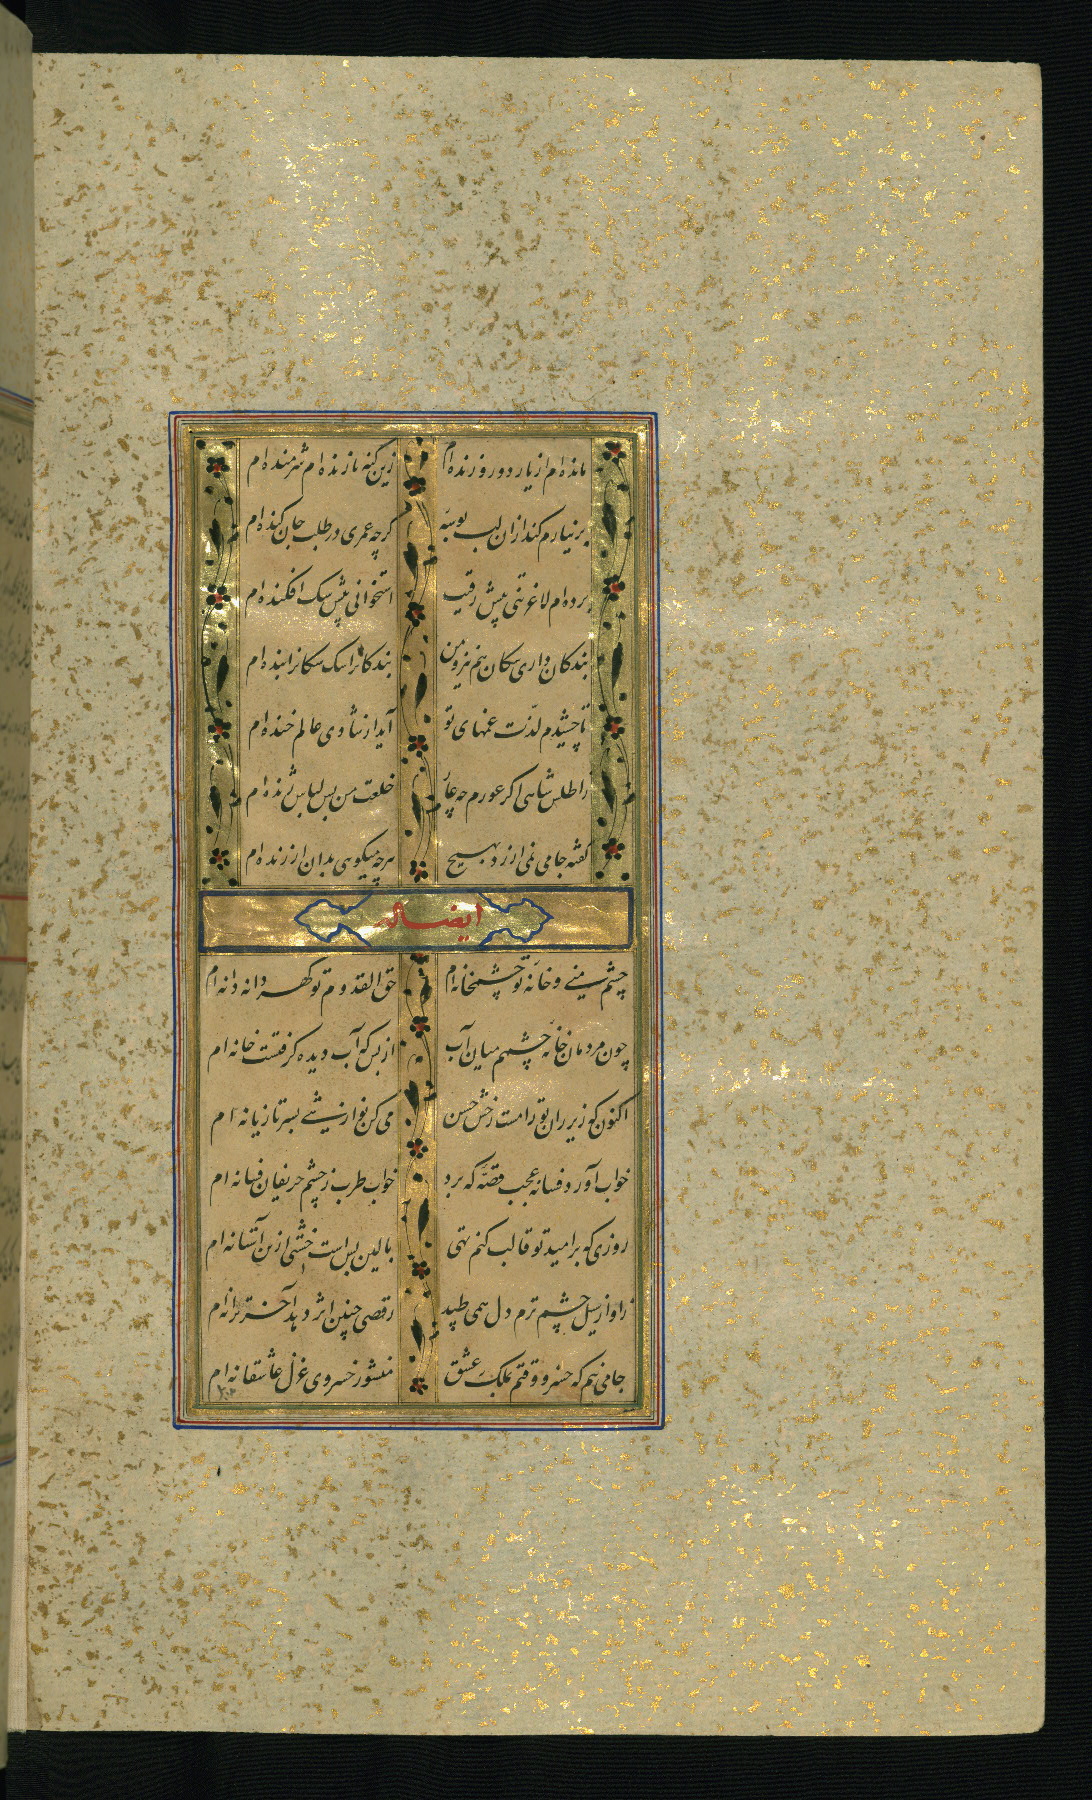 مانده‌ام از یار دور و زنده‌ام زین گنه تا زنده‌ام شرمنده‌ام
بر نیارم کند ازان لب بوسه کرچه عمری در طلب جان کنده‌ام
برده‌ام لاغر تنی پیش رقیب استخوانی پیش سک افکنده‌ام
بندکان داری سکان هم نیز و من بندکانرا سک سکانرا بنده‌ام
تا چشیدم لذت غمهای تو آید از شادی عالم خنده‌ام
ز اطلس شاهی اکر عورم چه عار خلعت من بس لباس ژنده‌ام
کفته جامی نمی ارزد بهیچ هرچه میکویی بدان ارزنده‌ام
ایضا له
چشم منی و خانه تو چشمخانه‌ام حق القدوم تو کهر دانه دانه‌ام
چون مردمان خانه چشمم میان آب از بس که آب دیده کرفتست خانه‌ام
اکنون که زیر ران تو رامست رخش حسن می کن نوازشی بسر تازیانه‌ام
خواب آورد فسانه عجب قصه که برد خواب طرب ز چشم حریفان فسانه‌ام
روزی که بر امید تو قالب کنم تهی بالین بس است خشتی ازین آستانه‌ام
ز آواز سیل چشم ترم دل همی طپد رقصی چنین اثر دهد آخر ترانه‌ام
جامی نیم که خسرو وقتم بملک عشق منشور خسروی غزل عاشقانه‌ام